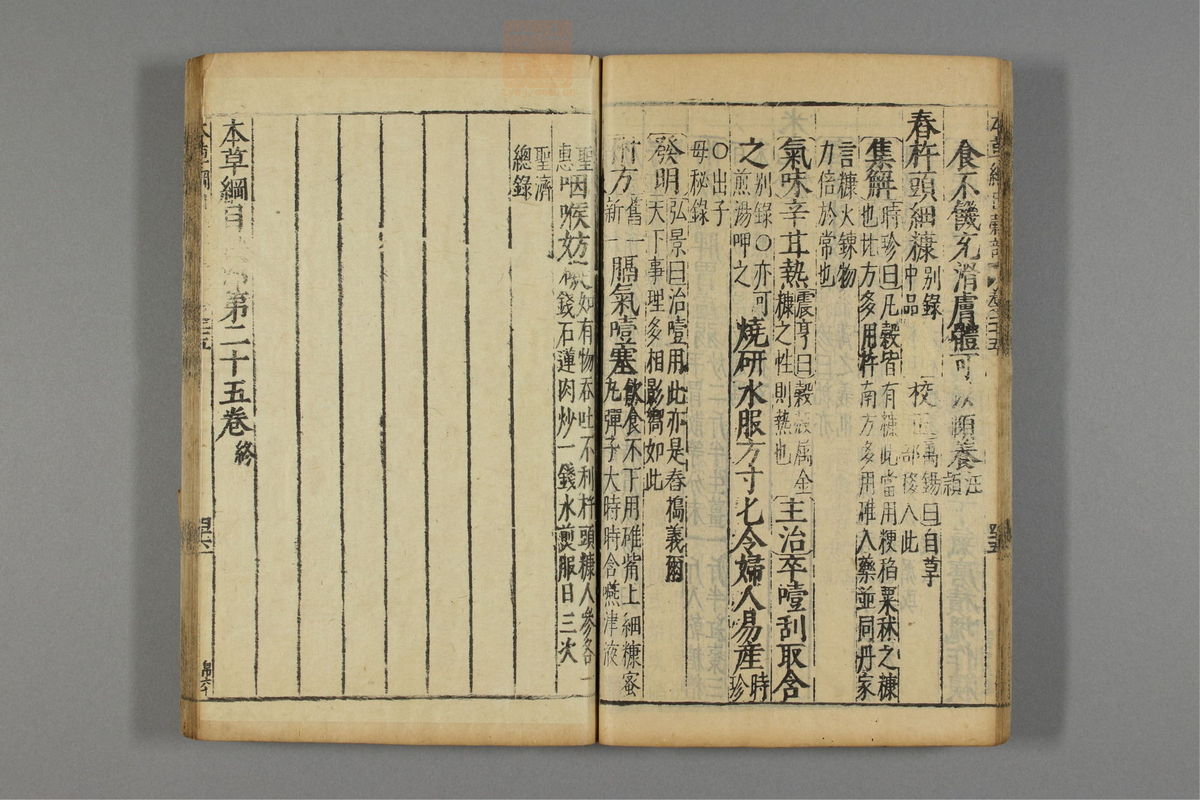 食不饑充滑膚體可以頤養汪頴
舂杵頭細糠别錄中品 校正禹錫曰自草部移入此
集解時珍曰凡穀皆有糠此當用粳稻粟秫之糠也北方多用杵南方多用碓入藥並同丹家
言糠火錬物力倍於常也
氣味辛甘熱震亨曰穀殼属金糠之性則熱也主治卒噎刮取含
之别錄○亦可煎湯呷之燒研水服方寸匕令婦人易産時珍
○出子母秘錄
發明弘景曰治噎用此亦是舂搗義爾天下事理多相影嚮如此
附方舊一新一膈氣噎塞飲食不下用碓觜上細糠蜜丸彈子大時時含嚥津液
聖惠咽喉妨礙如有物吞吐不利杵頭糠人參各一錢石蓮肉炒一錢水煎服日三次
聖濟總錄
本草綱目第二十五卷終